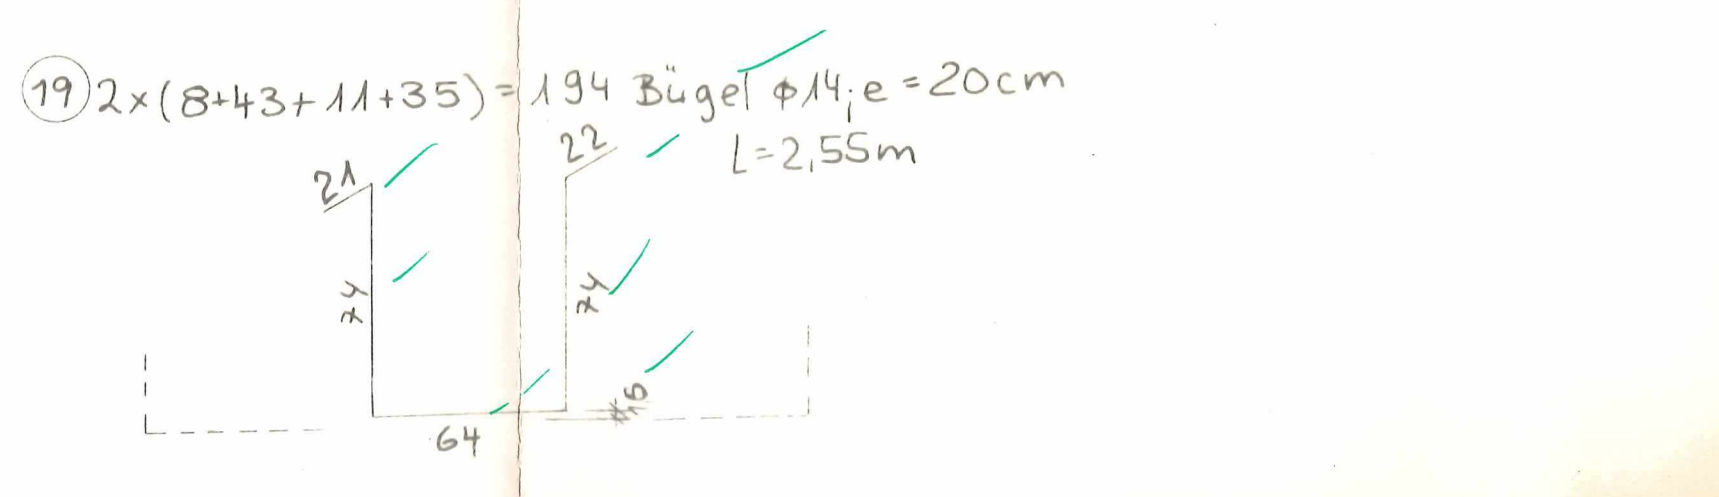 19 2×(8+43+11+35)=194 Bügel ϕ14; e=20cm
L=2,55m
21
22
74
74
64